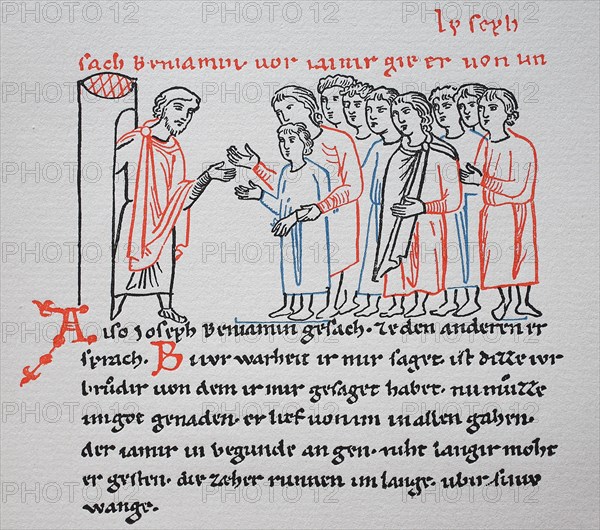 Ioseph
sach Beniamin, vor iamir gie er von un
Also Ioseph Beniamin gesach. ze den anderen er
sprach. Bi ivr warheit ir mir saget ist ditze ivr
brůdir von dem ir mir gesaget habet. nu můzze
im got genaden. er lief von im in allen gahen.
der iamir in begunde an gen. niht langir moht
er gesten. die zaher runnen im lange. ubir siniv
wange.
PHOTO 12